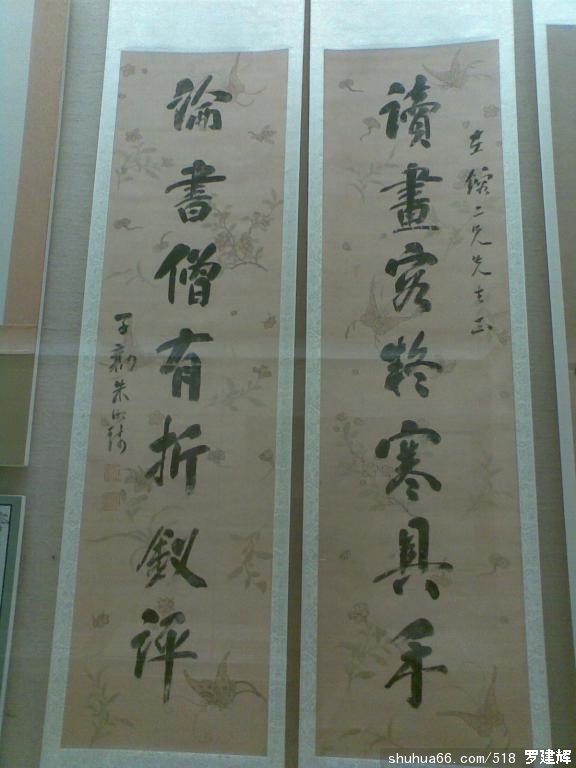 讀畫客矜寒具手
二兄先生正
論書僧有折釵評
朱
shuhua66.com/518 罗建辉